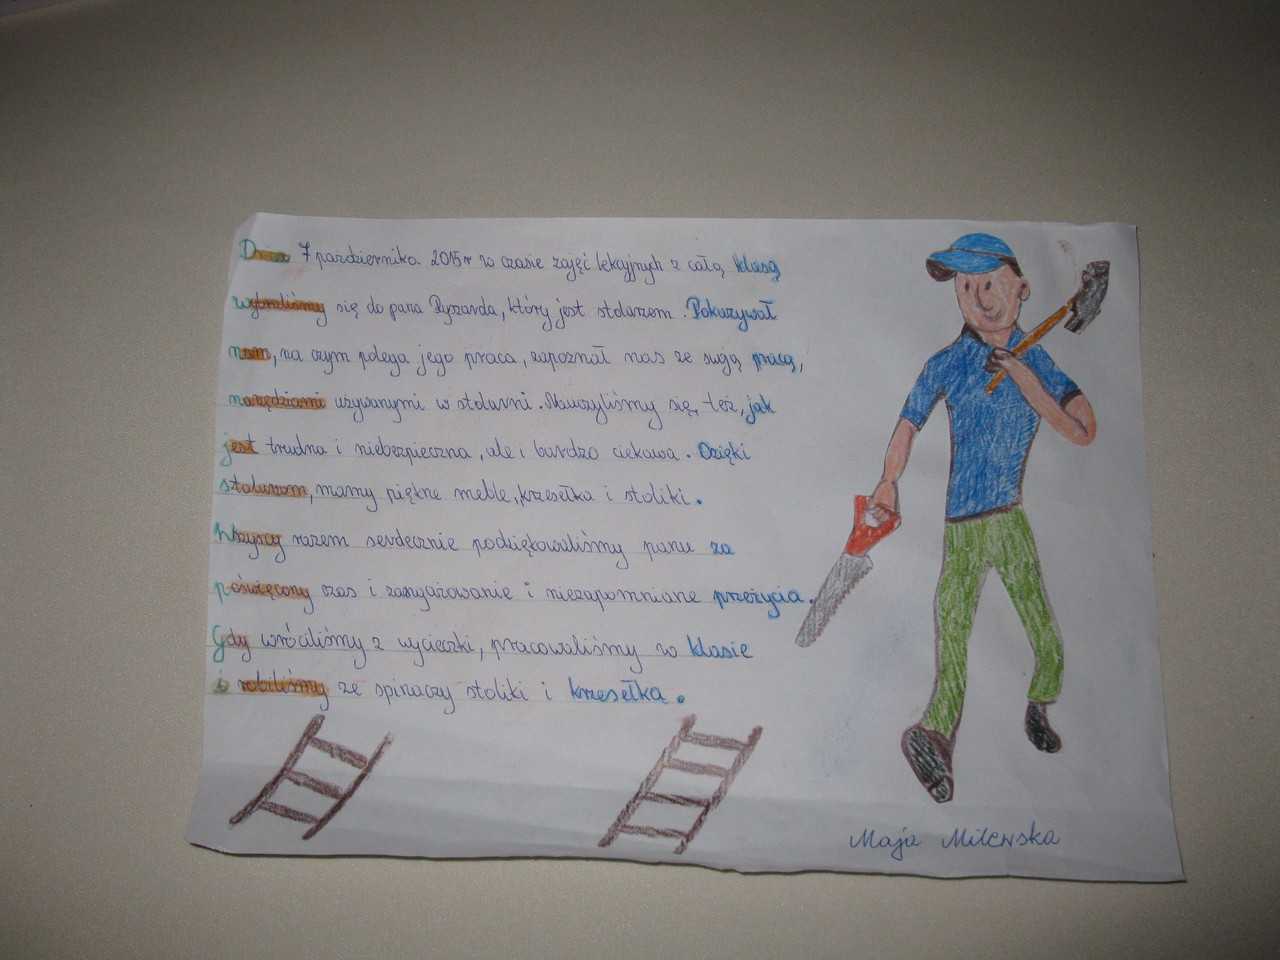 Dnia 7 października 2015r w czasie zajęć lekcyjnych z całą klasą
wybraliśmy się do pana Ryszarda, który jest stolarzem. Pokazywał
nam, na czym polega jego praca, zapoznał nas ze swoją pracą,
narzędziami używanymi w stolarni. Nauczyliśmy się, też, jak
jest trudna i niebezpieczna, ale i bardzo ciekawa. Dzięki
stolarzom, mamy piękne meble, krzesełka i stoliki.
Wszyscy razem serdecznie podziękowaliśmy panu za
poświęcony czas i zaangażowanie i niezapomniane przeżycia.
Gdy wróciliśmy z wycieczki, pracowaliśmy w klasie
i robiliśmy ze spinaczy stoliki i krzesełka.
Maja Milewska